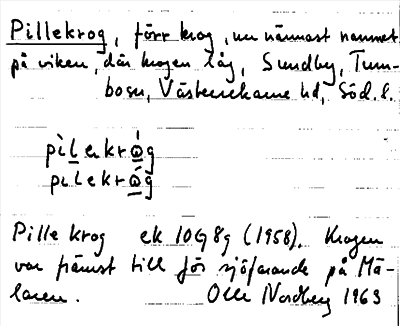 Pillekrog, förr krog, nu närmast namnet
på viken, där krogen låg, Sundby, Tum-
bosn, Västerrekarne hd, Söd. l.
pìlekrå̀g
pilekrǻg
Pillekrog ek 10G 8g (1958). Krogen
var främst till för sjöfarande på Mä-
laren. Olle Nordberg 1963